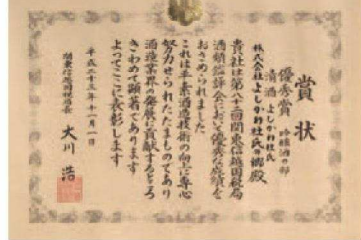 賞状
優秀賞 吟醸酒の部
清酒 よしかわ杜氏
株式会社よしかわ杜氏の郷殿
貴社は第八十二回関東信越国税局
酒類鑑評会において優秀な成績を
おさめられました
これは平素酒造技術の向上に専心
努力せられたたまものであり
酒造業界の発展に貢献するところ
きわめて顕著であります
よってここに表彰します
平成二十三年十一月一日
関東信越国税局長 大川浩